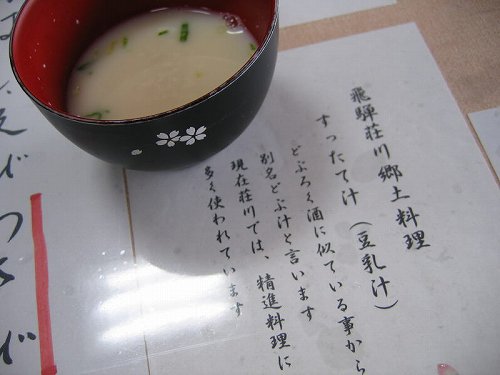 飛騨荘川郷土料理
すったて汁（豆乳汁）
どぶろく酒に似ている事から
別名どぶ汁と言います
現在荘川では、精進料理に
多く使われています